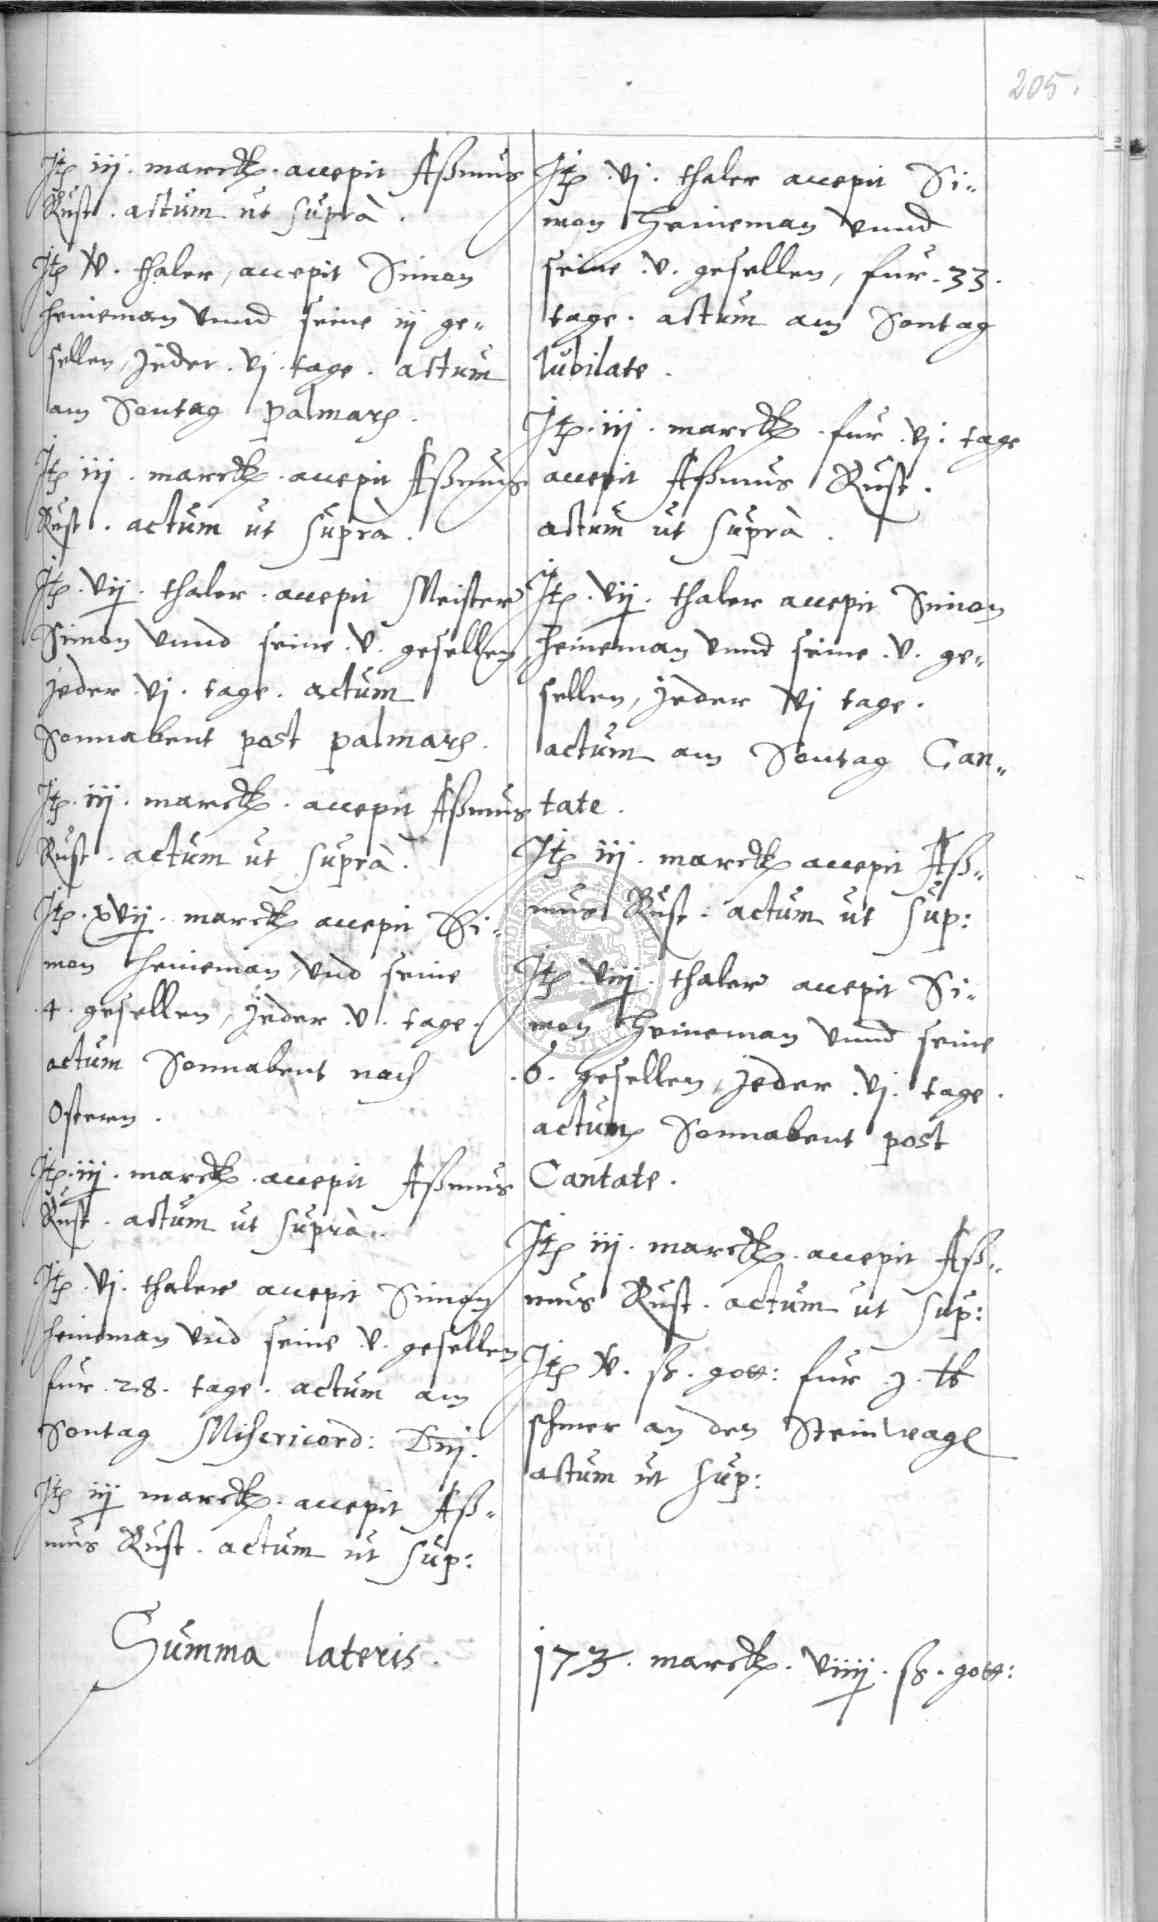 205.
Itē iij. marck. accepit Aßmus
Rust. actum ut suprà.
Itē v. thaler, accepit Simon
heineman vnnd seine iij ge„
sellen, Jeder. vj. tage. actum
am Sontag palmarū.
Itē iij. marck. accepit Aßmus
Rust. actum ut suprà.
Itē. vij. thaler. accepit Meister
Simon vnnd seine. v. gesellen
jeder. vj. tage. actum
Sonnabent post palmarū.
Itē. iij. marck. accepit Aßmus
Rust. actum ut suprà.
Itē. xvij. marck accepit Si„
mon heineman, vnd seine
.4. gesellen, Jeder. v. tage.
actum Sonnabent nach
Ostern.
Itē. iij. marck. accepit Aßmus
Rust. actum ut suprà.
Itē. vj. thaler accepit Simon
heineman vnd seine. v. gesellen
fur. 28. tage. actum am
Sontag Misericord: Dnj.
Itē iij marck. accepit Aß„
mus Rust. actum ut sup:
Itē. vj. thaler accepit Si„
mon Heineman vnnd
seine. v. gesellen, fur. 33.
tage. actum am Sontag
Iubilate.
Itē. iij. marck. fur. vj. tage
accepit Aßmus Rust.
actum ut suprà.
Itē. vij. thaler accepit Simon
Heineman vnnd seine. v. ge„
sellen, Jeder vj tage.
actum am Sontag Can„
tate.
Itē iij. marck accepit Aß„
mus Rust. actum ut sup:
Itē. viij. thaler accepit Si„
mon Heineman vnnd seine
.6. gesellen, Jeder. vj. tage.
actum Sonnabent post
Cantate.
Itē iij. marck. accepit Aß„
mus Rust. actum ut sup:
Itē v. ß. gott: fur j. ℔
schmer an den Steinwage
actum ut sup:
Summa lateris.
173. marck. viiij. ß. gott: